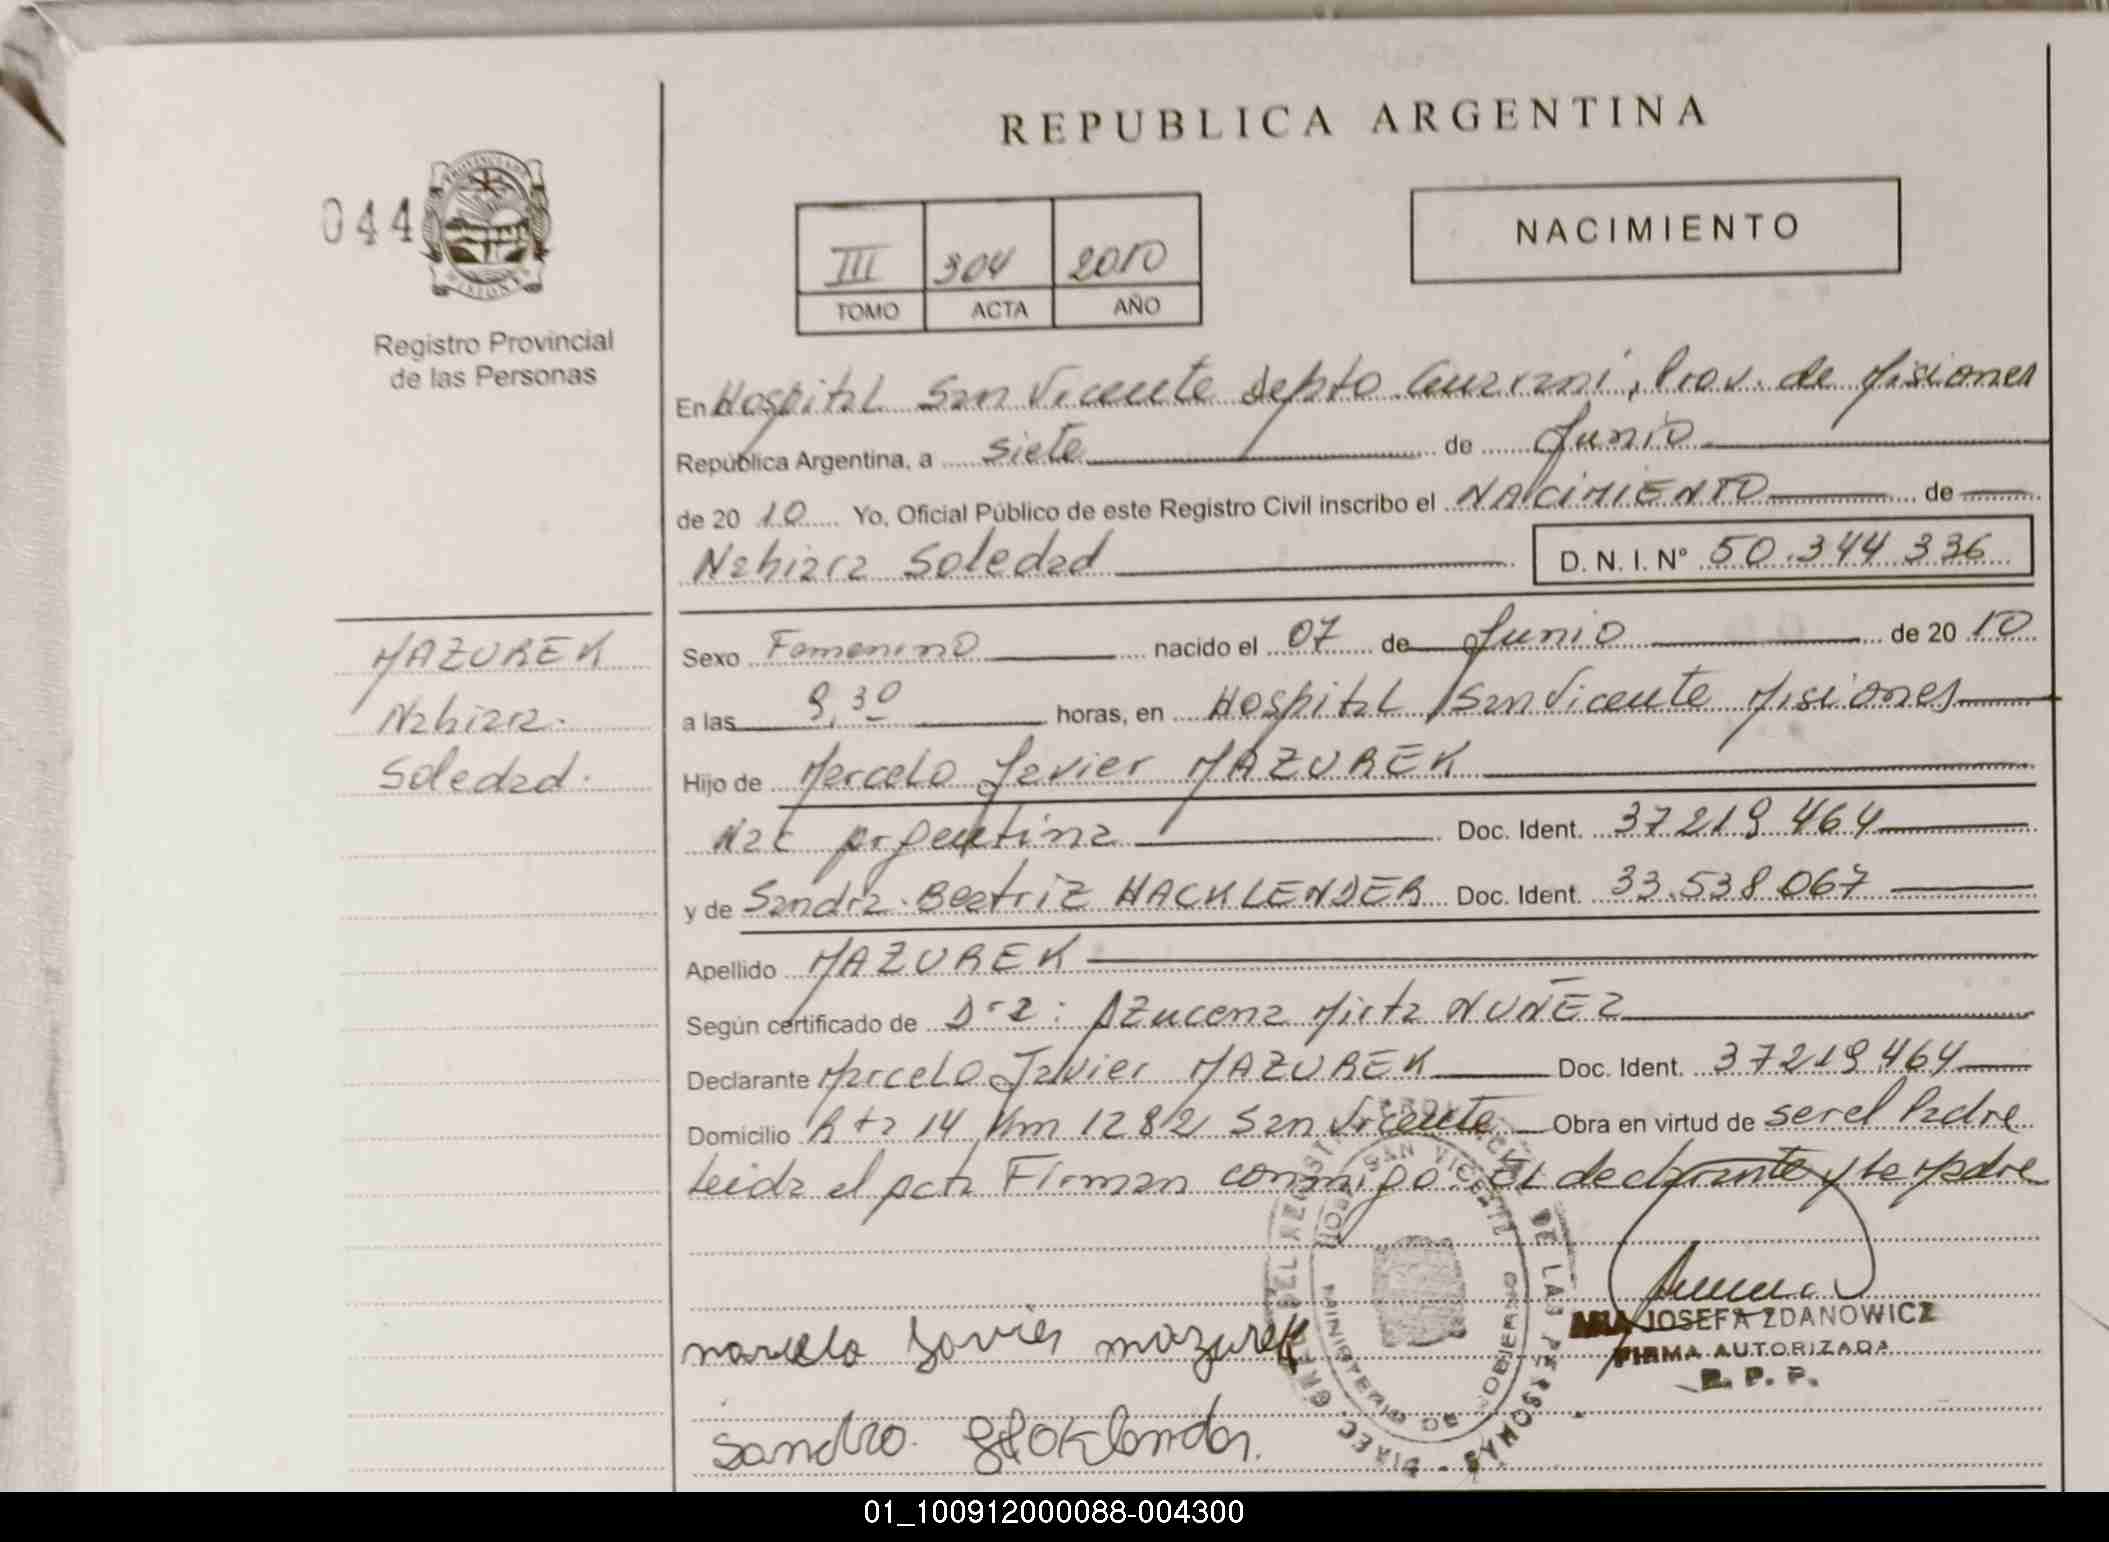 REPUBLICA ARGENTINA
044
NACIMIENTO
III 304 2010
TOMO ACTA AÑO
Registro Provincial
de las Personas
En Hospital San Vicente Depto Guarani, Prov. de Misiones
República Argentina, a siete de Junio
de 20 10 Yo, Oficial Público de este Registro Civil inscribo el NACIMIENTO de
Nahiara Soledad D. N. I. Nº 50.344 336
MAZUREK
Nahiara.
Soledad.
Sexo Femenino nacido el 07 de Junio de 20 10
a las 9,30 horas, en Hospital San Vicente Misiones
Hijo de Marcelo Javier MAZUREK
Nac Argentina Doc. Ident. 37219 464
y de Sandra Beatriz HACKLENDER Doc. Ident. 33.538.067
Apellido MAZUREK
Según certificado de Dra: Azucena Mirta NUÑEZ
Declarante Marcelo Javier MAZUREK Doc. Ident. 37219.464
Domicilio Rta 14 Km 1282 San Vicente Obra en virtud de ser el Padre
Leida el acta Firman conmigo El declarante y la Madre
marcelo Javier mazurek
JOSEFA ZDANOWICZ
FIRMA AUTORIZADA
R. P. P.
DE LAS PERSONAS
SAN VICENTE
MINISTERIO DE GOBIERNO
01_100912000088-004300